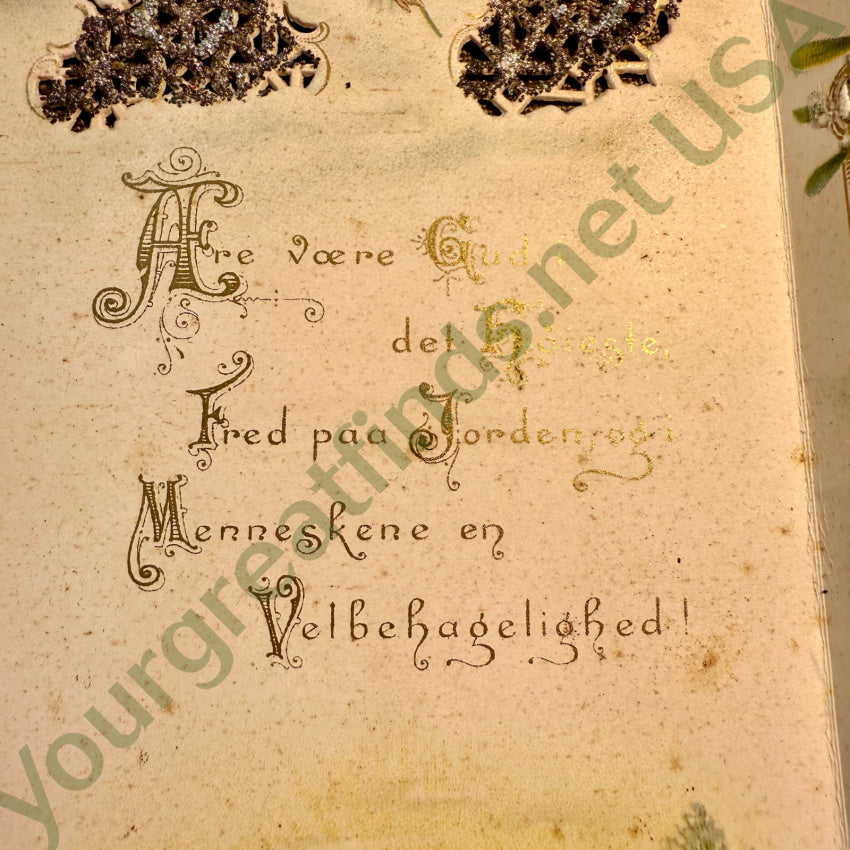 Ære være Gud i
det Høieste,
Fred paa Jorden, og i
Menneskene en
Velbehagelighed!
yourgreatfinds.net USA